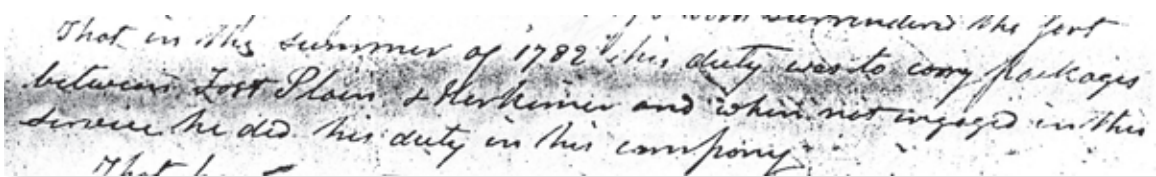 surrendered the fort
That in the summer of 1782 his duty was to carry packages
between Fort Plain & Herkimer and when not engaged in this
service he did his duty in his company
That he